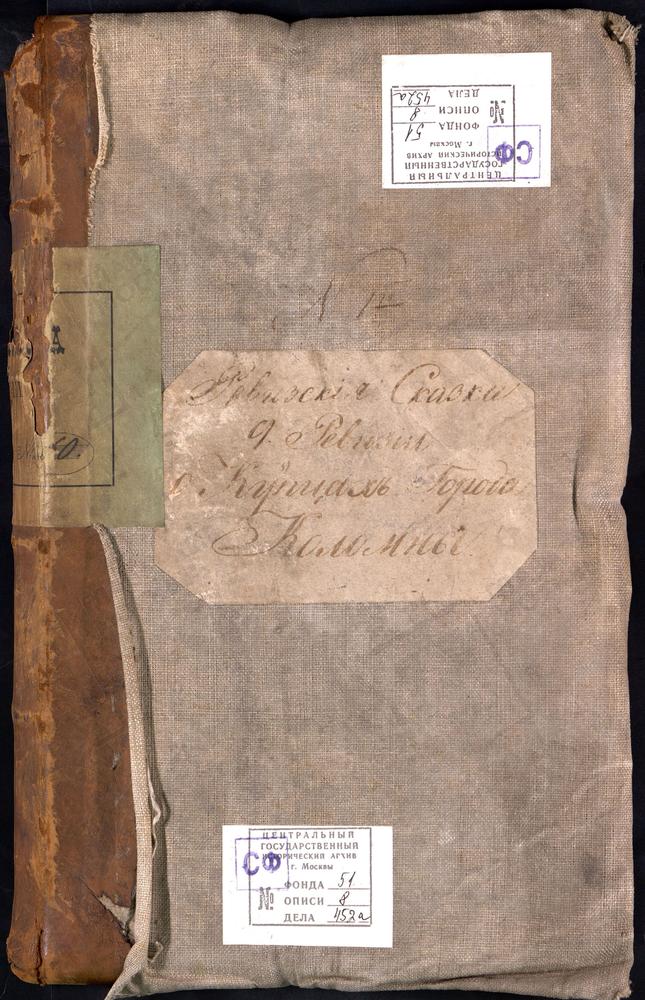 ЦЕНТРАЛЬНЫЙ
ГОСУДАРСТВЕННЫЙ
ИСТОРИЧЕСКИЙ АРХИВ
г. Москвы
СФ
№
ФОНДА 51
ОПИСИ 8
ДЕЛА 452а
N III
Ревизскія Сказки
9. Ревизіи
о Купцахъ Города
Коломны.
ЦЕНТРАЛЬНЫЙ
ГОСУДАРСТВЕННЫЙ
ИСТОРИЧЕСКИЙ АРХИВ
г. Москвы
СФ
№
ФОНДА 51
ОПИСИ 8
ДЕЛА 452а